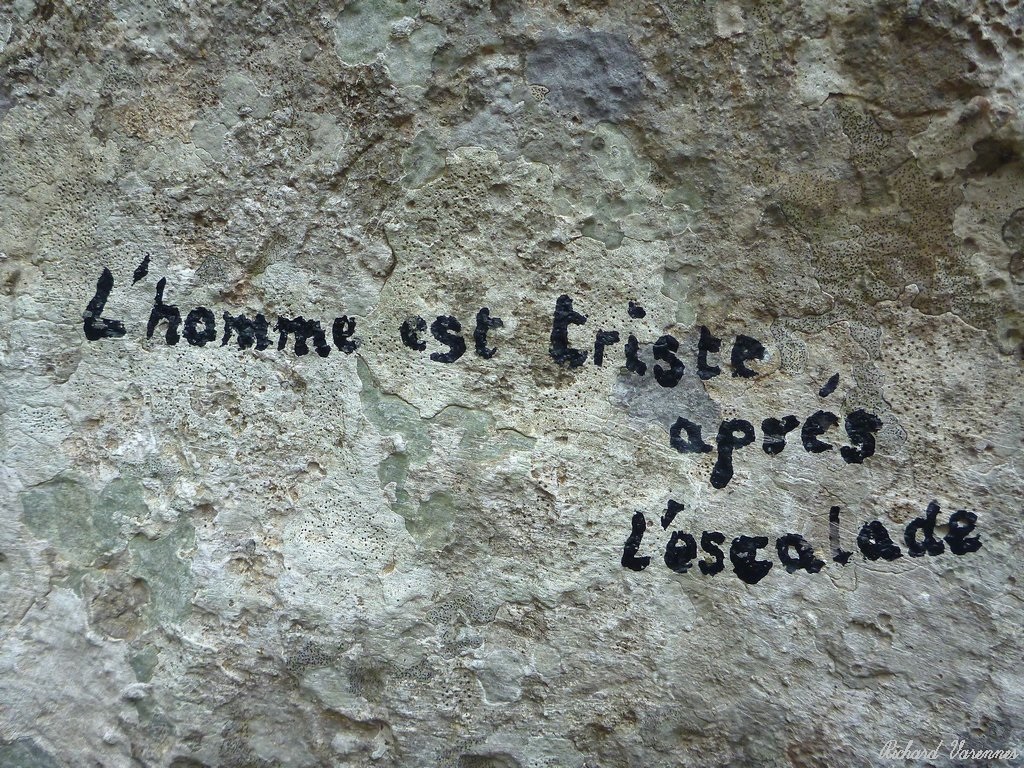 L'homme est triste
aprés
l'escalade
Richard Varennes